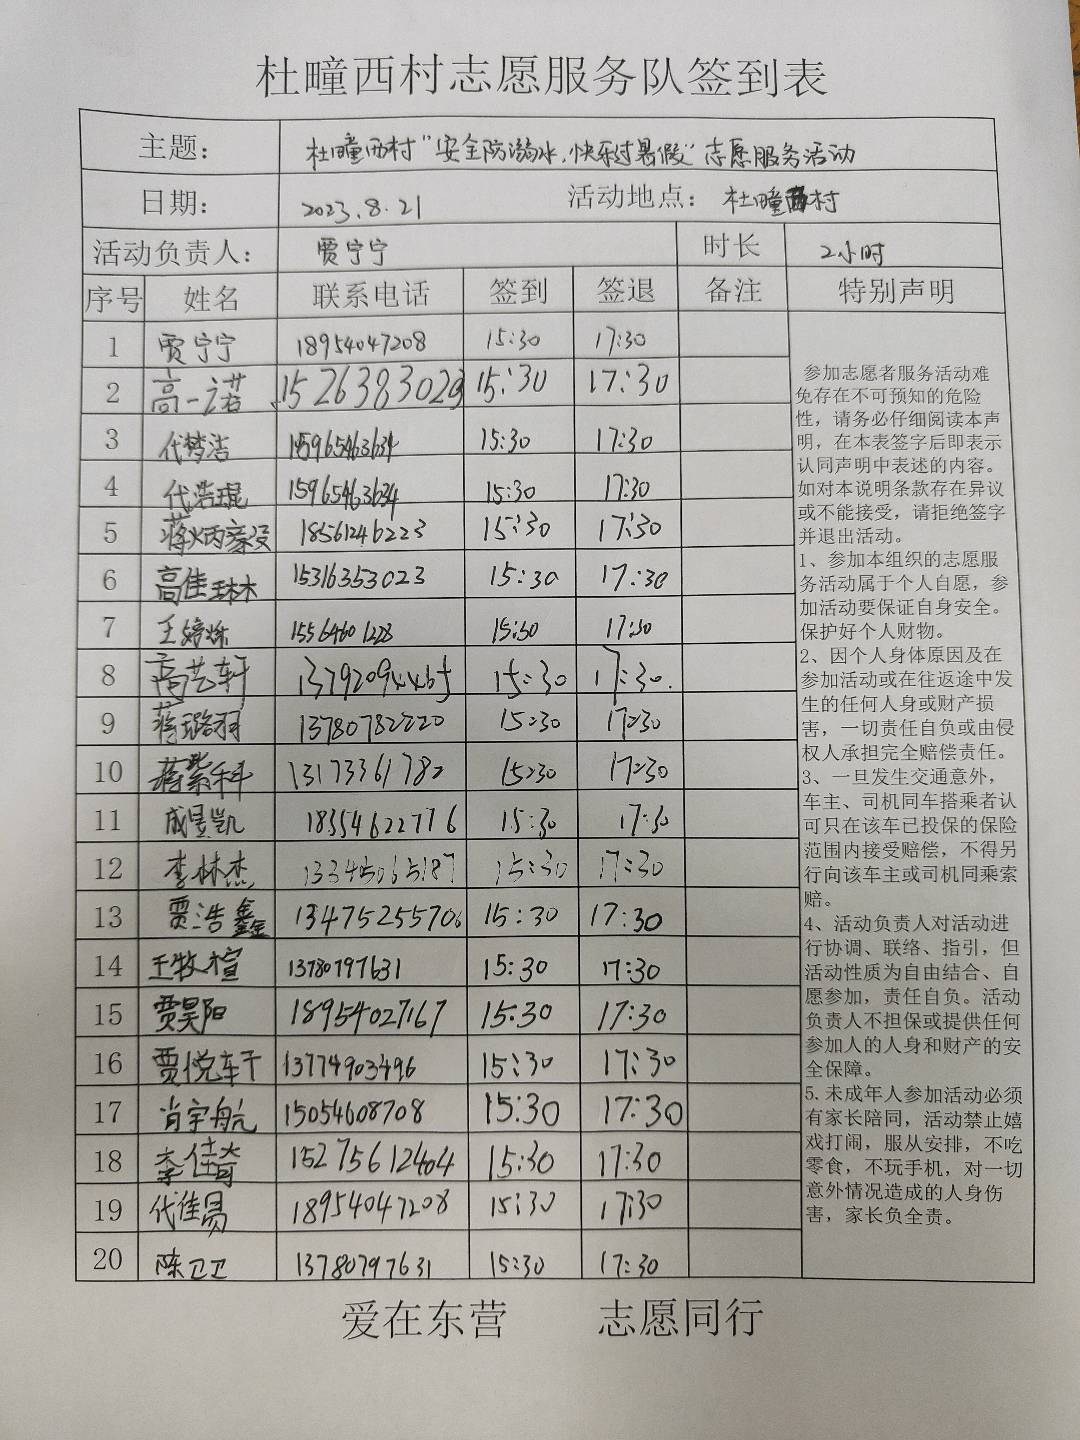 杜疃西村志愿服务队签到表
主题: 杜疃西村“安全防溺水,快乐过暑假”志愿服务活动
日期: 2023.8.21 活动地点: 杜疃西村
活动负责人: 贾宁宁 时长 2小时
序号 姓名 联系电话 签到 签退 备注 特别声明
1 贾宁宁 18954047208 15:30 17:30
2 高一诺 1526383029 15:30 17:30
3 代梦洁 15965463634 15:30 17:30
4 代浩琨 15965463634 15:30 17:30
5 蒋炳豪 18561246223 15:30 17:30
6 高佳琳 15316353023 15:30 17:30
7 15564601228 15:30 17:30
8 高艺轩 15:30 17:30.
9 蒋璐羽 13780782220 15:30 17:30
10 蒋紫科 13173361782 15:30 17:30
11 成昱凯 18354622776 15:30 17:30
12 李林杰 13345065187 15:30 17:30
13 贾浩鑫 13475255706 15:30 17:30
14 王牧萱 13780797631 15:30 17:30
15 贾昊阳 18954027167 15:30 17:30
16 贾悦轩 13774903496 15:30 17:30
17 肖宇航 15054608708 15:30 17:30
18 李佳奇 15275612404 15:30 17:30
19 代佳易 18954047208 15:30 17:30
20 陈卫卫 13780797631 15:30 17:30
参加志愿者服务活动难
免存在不可预知的危险
性，请务必仔细阅读本声
明，在本表签字后即表示
认同声明中表述的内容。
如对本说明条款存在异议
或不能接受，请拒绝签字
并退出活动。
1、参加本组织的志愿服
务活动属于个人自愿，参
加活动要保证自身安全。
保护好个人财物。
2、因个人身体原因及在
参加活动或在往返途中发
生的任何人身或财产损
害，一切责任自负或由侵
权人承担完全赔偿责任。
3、一旦发生交通意外，
车主、司机同车搭乘者认
可只在该车已投保的保险
范围内接受赔偿，不得另
行向该车主或司机同乘索
赔。
4、活动负责人对活动进
行协调、联络、指引，但
活动性质为自由结合、自
愿参加，责任自负。活动
负责人不担保或提供任何
参加人的人身和财产的安
全保障。
5.未成年人参加活动必须
有家长陪同，活动禁止嬉
戏打闹，服从安排，不吃
零食，不玩手机，对一切
意外情况造成的人身伤
害，家长负全责。
爱在东营 志愿同行